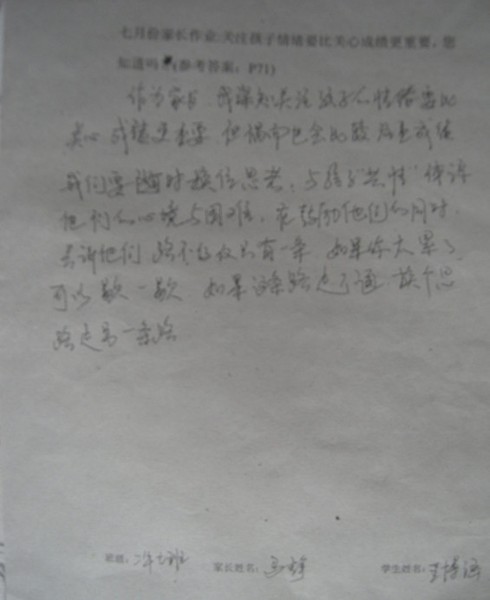 七月份家长作业:关注孩子情绪要比关心成绩更重要,您
知道吗?(参考答案:P71)
作为家长,我深知关注孩子的情绪要比
关心成绩更重要,
我们要随时换位思考,与孩子"共情"体谅
他们的心境与困难,在鼓励他们的同时,
告诉他们 路不仅仅只有一条 如果你太累了
可以歇一歇 如果这条路走不通 换个思
路走另一条路
班级: 家长姓名: 学生姓名:王